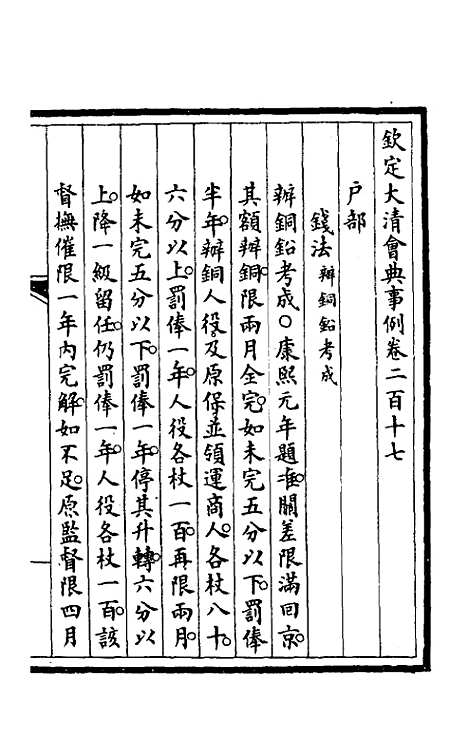 欽定大清會典事例卷二百十七
戶部
錢法辦銅鉛考成
辦銅鉛考成○康熙元年題准關差限滿回京
其額辦銅限兩月全完如未完五分以下罰俸
半年辦銅人役及原保並領運商人各杖八十
六分以上罰俸一年人役各杖一百再限兩月
如未完五分以下罰俸一年停其升轉六分以
上降一級留任仍罰俸一年人役各杖一百該
督撫催限一年內完解如不足原監督限四月